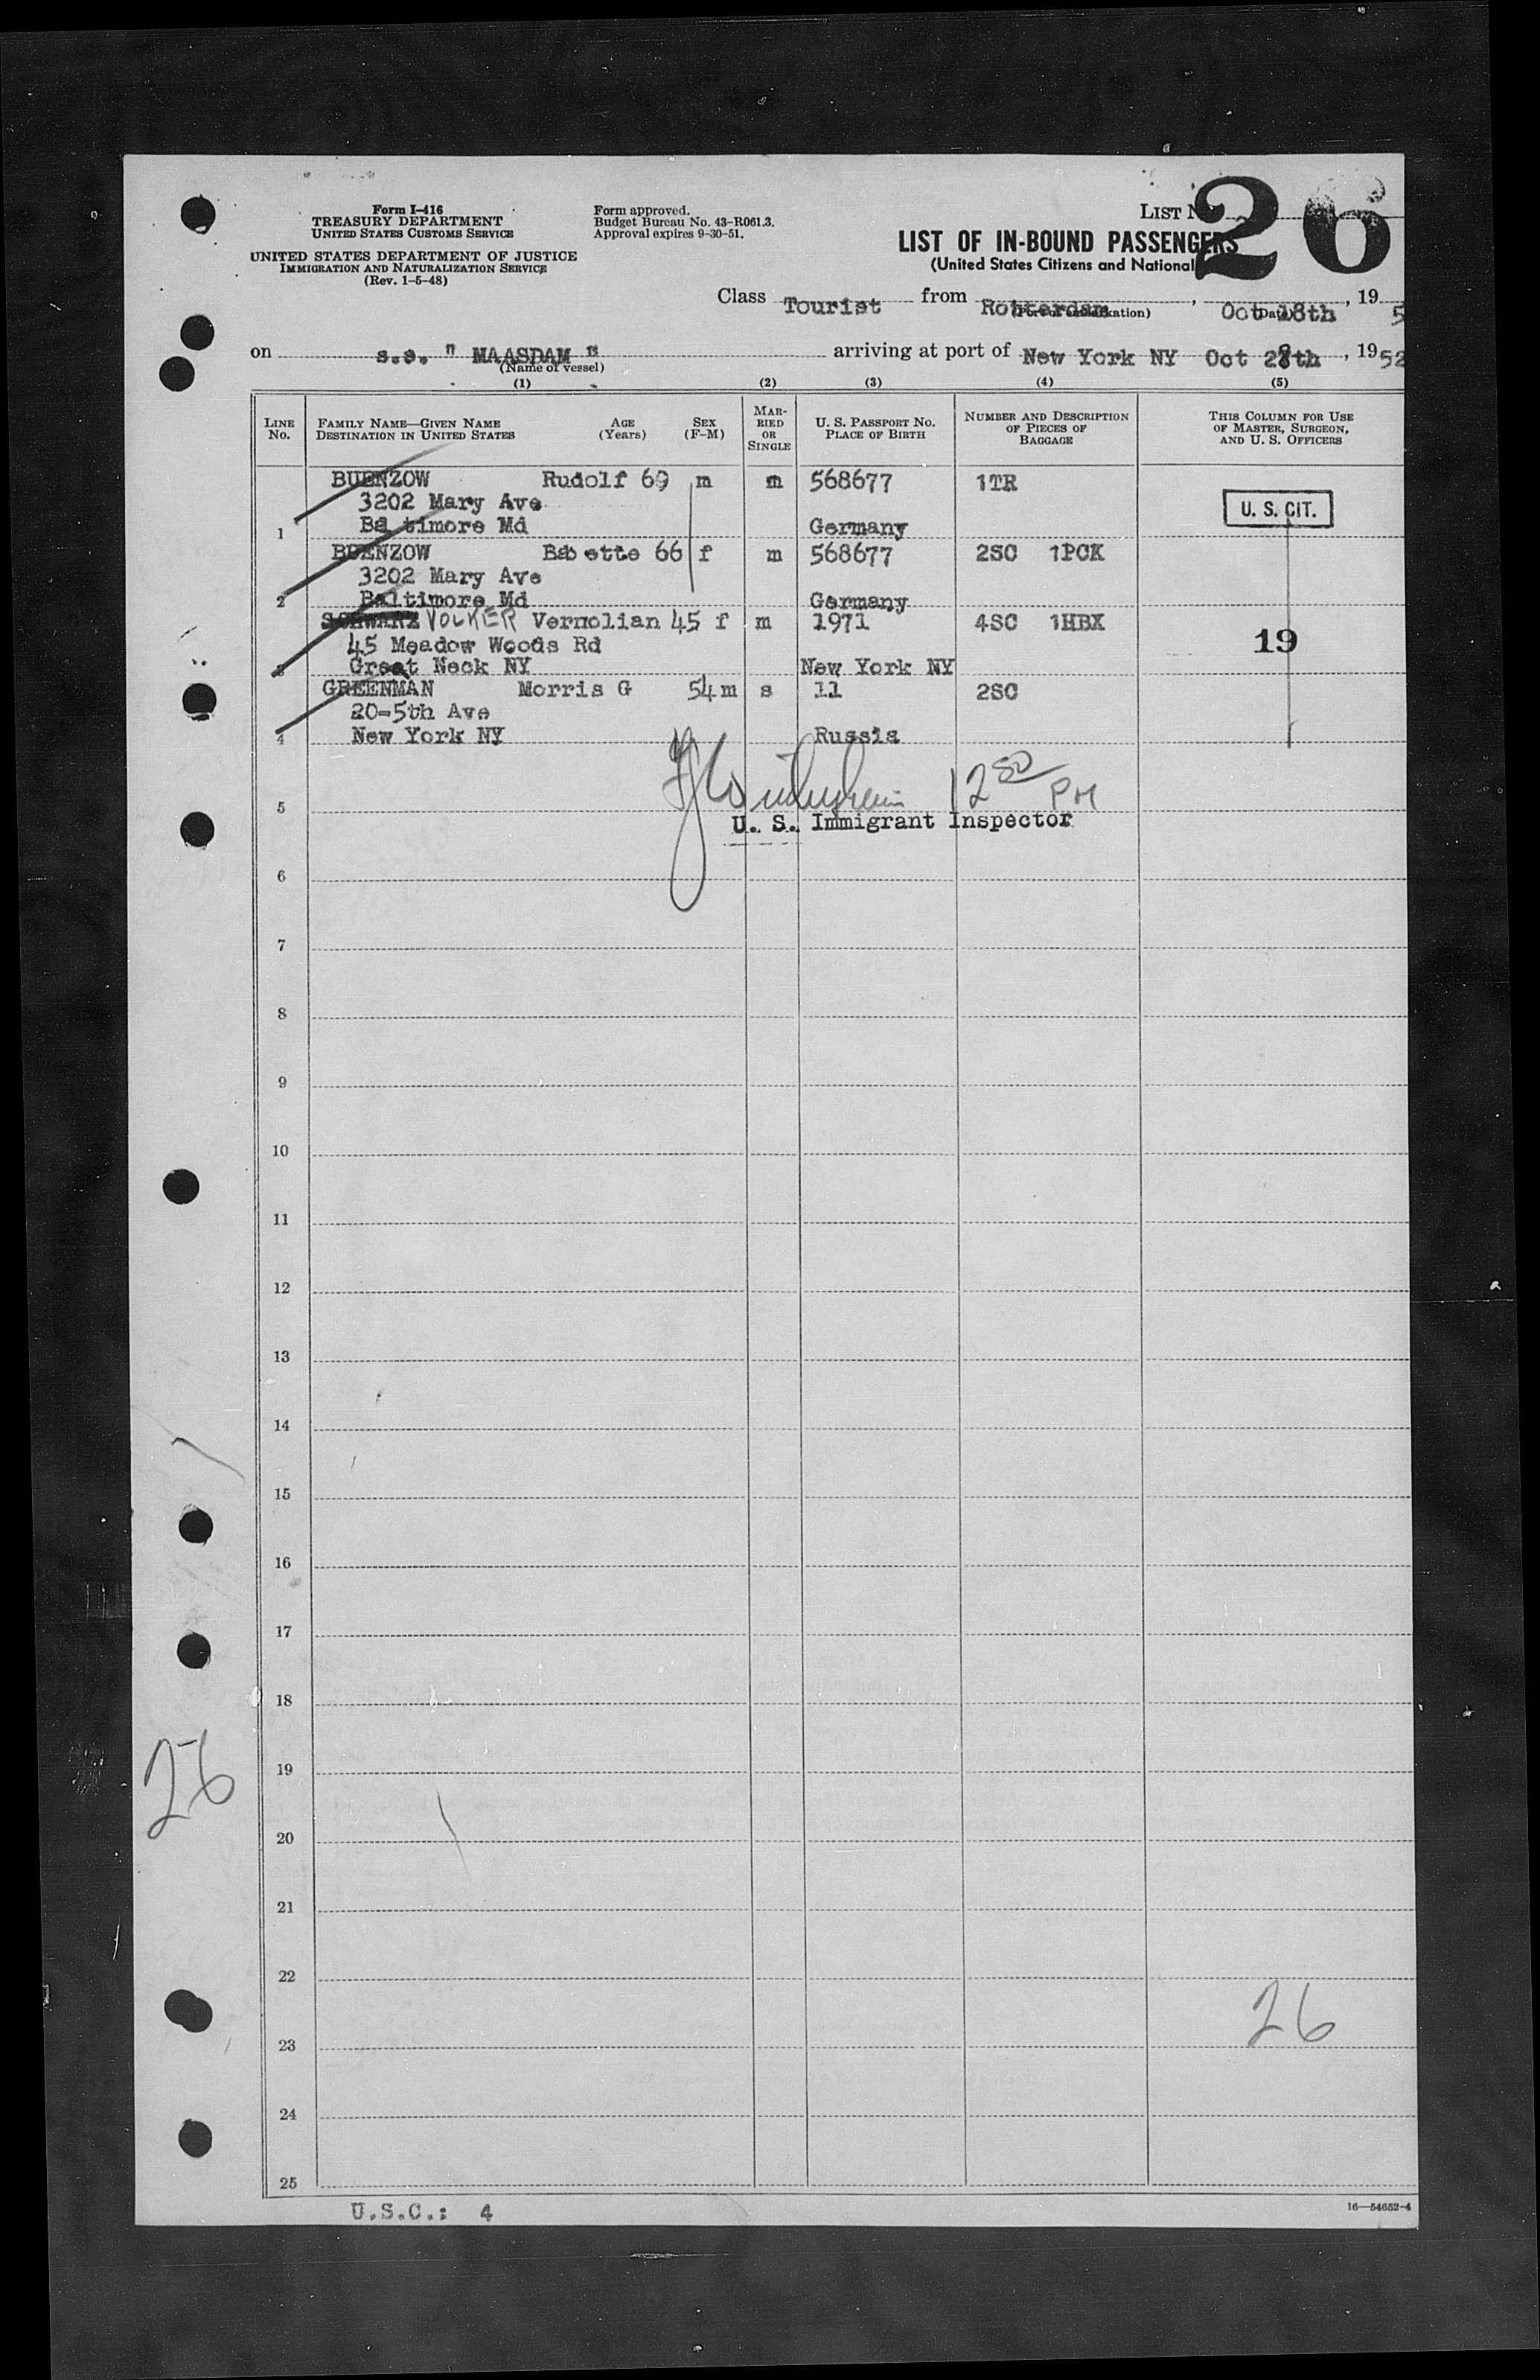 Form I-416
TREASURY DEPARTMENT
UNITED STATES CUSTOMS SERVICE
UNITED STATES DEPARTMENT OF JUSTICE
IMMIGRATION AND NATURALIZATION SERVICE
(Rev. 1-5-48)
Form approved.
Budget Bureau No. 43-R061.3.
Approval expires 9-30-51.
LIST N 26
LIST OF IN-BOUND PASSENGERS
(United States Citizens and National
Class Tourist from Rotterdam, Oct 18th, 19 5
(Port of embarkation) (Date)
on s.s. " MAASDAM " arriving at port of New York NY Oct 28th, 19 52
(Name of vessel)
(1) (2) (3) (4) (5)
LINE No. FAMILY NAME—GIVEN NAME DESTINATION IN UNITED STATES AGE (Years) SEX (F-M) MARRIED OR SINGLE U. S. PASSPORT NO. PLACE OF BIRTH NUMBER AND DESCRIPTION OF PIECES OF BAGGAGE THIS COLUMN FOR USE OF MASTER, SURGEON, AND U. S. OFFICERS
BUENZOW Rudolf 69 m m 568677 1TR
3202 Mary Ave U. S. CIT.
1 Baltimore Md Germany
BUENZOW Babette 66 f m 568677 2SC 1PCK
3202 Mary Ave
2 Baltimore Md Germany
SCHWARZ VOLKER Vernolian 45 f m 1971 4SC 1HBX
45 Meadow Woods Rd 19
3 Great Neck NY New York NY
GREENMAN Morris G 54 m s 11 2SC
20-5th Ave
4 New York NY Russia
12 50 PM
5
U. S. Immigrant Inspector
6
7
8
9
10
11
12
13
14
15
16
17
18
19
26
20
21
22
26
23
24
25
U.S.C.: 4
16—54652-4